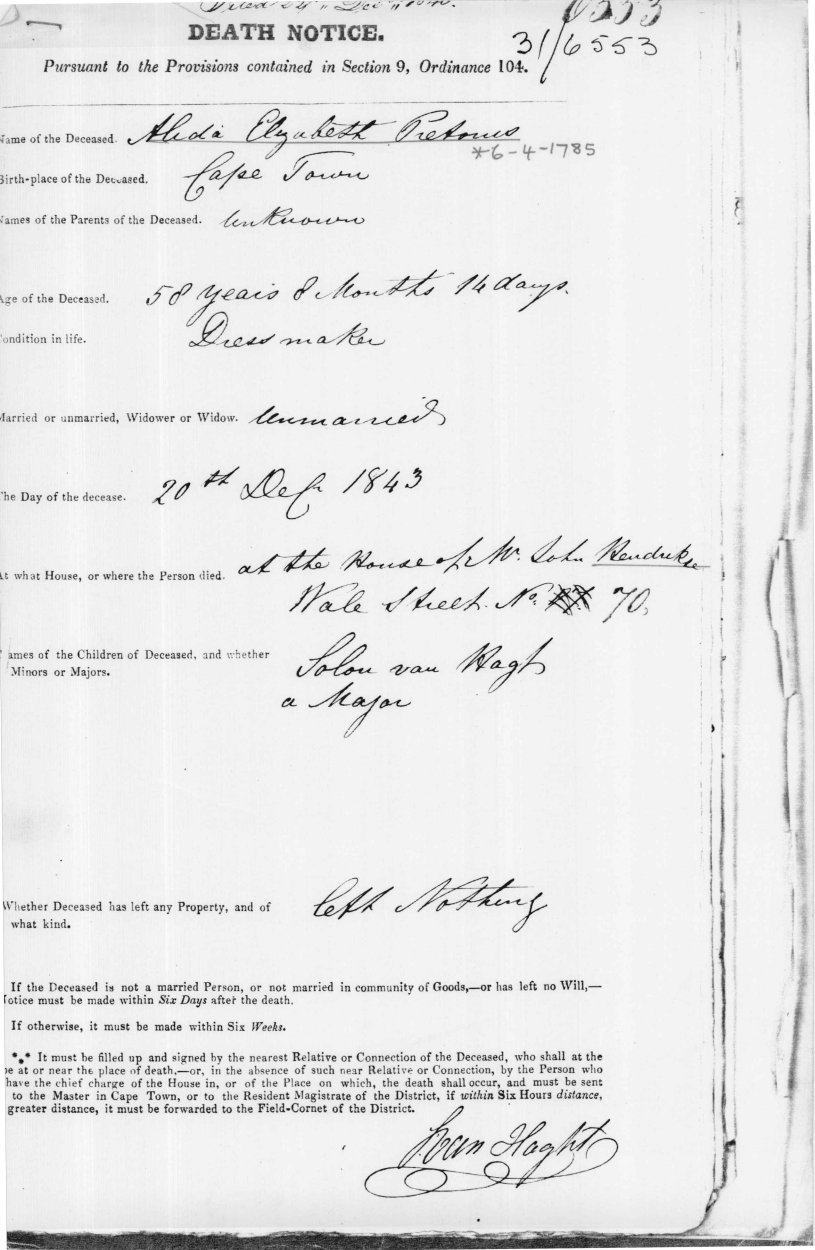 Filed 24 " Dec "
6553
DEATH NOTICE.
31/6553
Pursuant to the Provisions contained in Section 9, Ordinance 104.
Name of the Deceased. Alida Elizabeth Pretorius
*6-4-1785
Birth-place of the Deceased. Cape Town
Names of the Parents of the Deceased. Unknown
Age of the Deceased. 58 years 8 Months 14 days.
Condition in life. Dressmaker
Married or unmarried, Widower or Widow. Unmarried
The Day of the decease. 20th Decr 1843
At what House, or where the Person died. at the House of Mr. John Hendrikse
Wale Street. No. 70,
Names of the Children of Deceased, and whether
Minors or Majors.
Solon van Haght
a Major
Whether Deceased has left any Property, and of
what kind.
left Nothing
If the Deceased is not a married Person, or not married in community of Goods,—or has left no Will,—
Notice must be made within Six Days after the death.
If otherwise, it must be made within Six Weeks.
*⁎* It must be filled up and signed by the nearest Relative or Connection of the Deceased, who shall at the
be at or near the place of death,—or, in the absence of such near Relative or Connection, by the Person who
have the chief charge of the House in, or of the Place on which, the death shall occur, and must be sent
to the Master in Cape Town, or to the Resident Magistrate of the District, if within Six Hours distance,
greater distance, it must be forwarded to the Field-Cornet of the District.
Haght